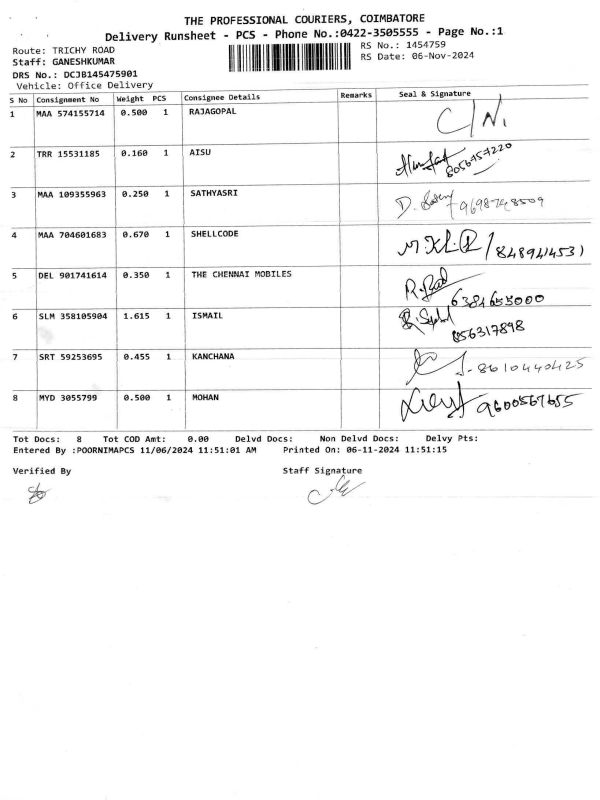 THE PROFESSIONAL COURIERS, COIMBATORE
Delivery Runsheet - PCS - Phone No.:0422-3505555 - Page No.:1
Route: TRICHY ROAD
RS No.: 1454759
Staff: GANESHKUMAR
RS Date: 06-Nov-2024
DRS No.: DCJB145475901
Vehicle: Office Delivery
S No Consignment No Weight PCS Consignee Details Remarks Seal & Signature
1 MAA 574155714 0.500 1 RAJAGOPAL C/N.
2 TRR 15531185 0.160 1 AISU 8056757220
3 MAA 109355963 0.250 1 SATHYASRI D. 9698748509
4 MAA 704601683 0.670 1 SHELLCODE /8489414531
5 DEL 901741614 0.350 1 THE CHENNAI MOBILES 6384655000
6 SLM 358105904 1.615 1 ISMAIL 856317898
7 SRT 59253695 0.455 1 KANCHANA 8610440425
8 MYD 3055799 0.500 1 MOHAN 9600567655
Tot Docs: 8 Tot COD Amt: 0.00 Delvd Docs: Non Delvd Docs: Delvy Pts:
Entered By :POORNIMAPCS 11/06/2024 11:51:01 AM Printed On: 06-11-2024 11:51:15
Verified By Staff Signature